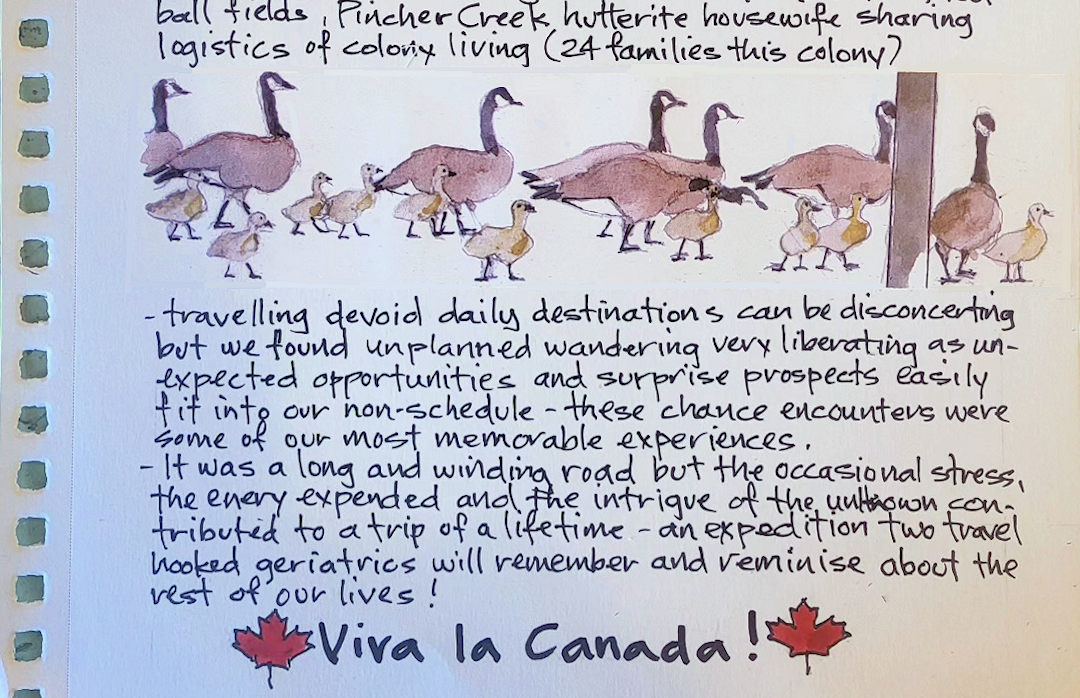 ball fields, Pincher Creek hutterite housewife sharing
logistics of colony living (24 families this colony)
- travelling devoid daily destinations can be disconcerting
but we found unplanned wandering very liberating as un-
expected opportunities and surprise prospects easily
fit into our non-schedule - these chance encounters were
some of our most memorable experiences.
- It was a long and winding road but the occasional stress,
the enery expended and the intrigue of the unknown con-
tributed to a trip of a lifetime - an expedition two travel
hooked geriatrics will remember and reminise about the
rest of our lives!
Viva la Canada!